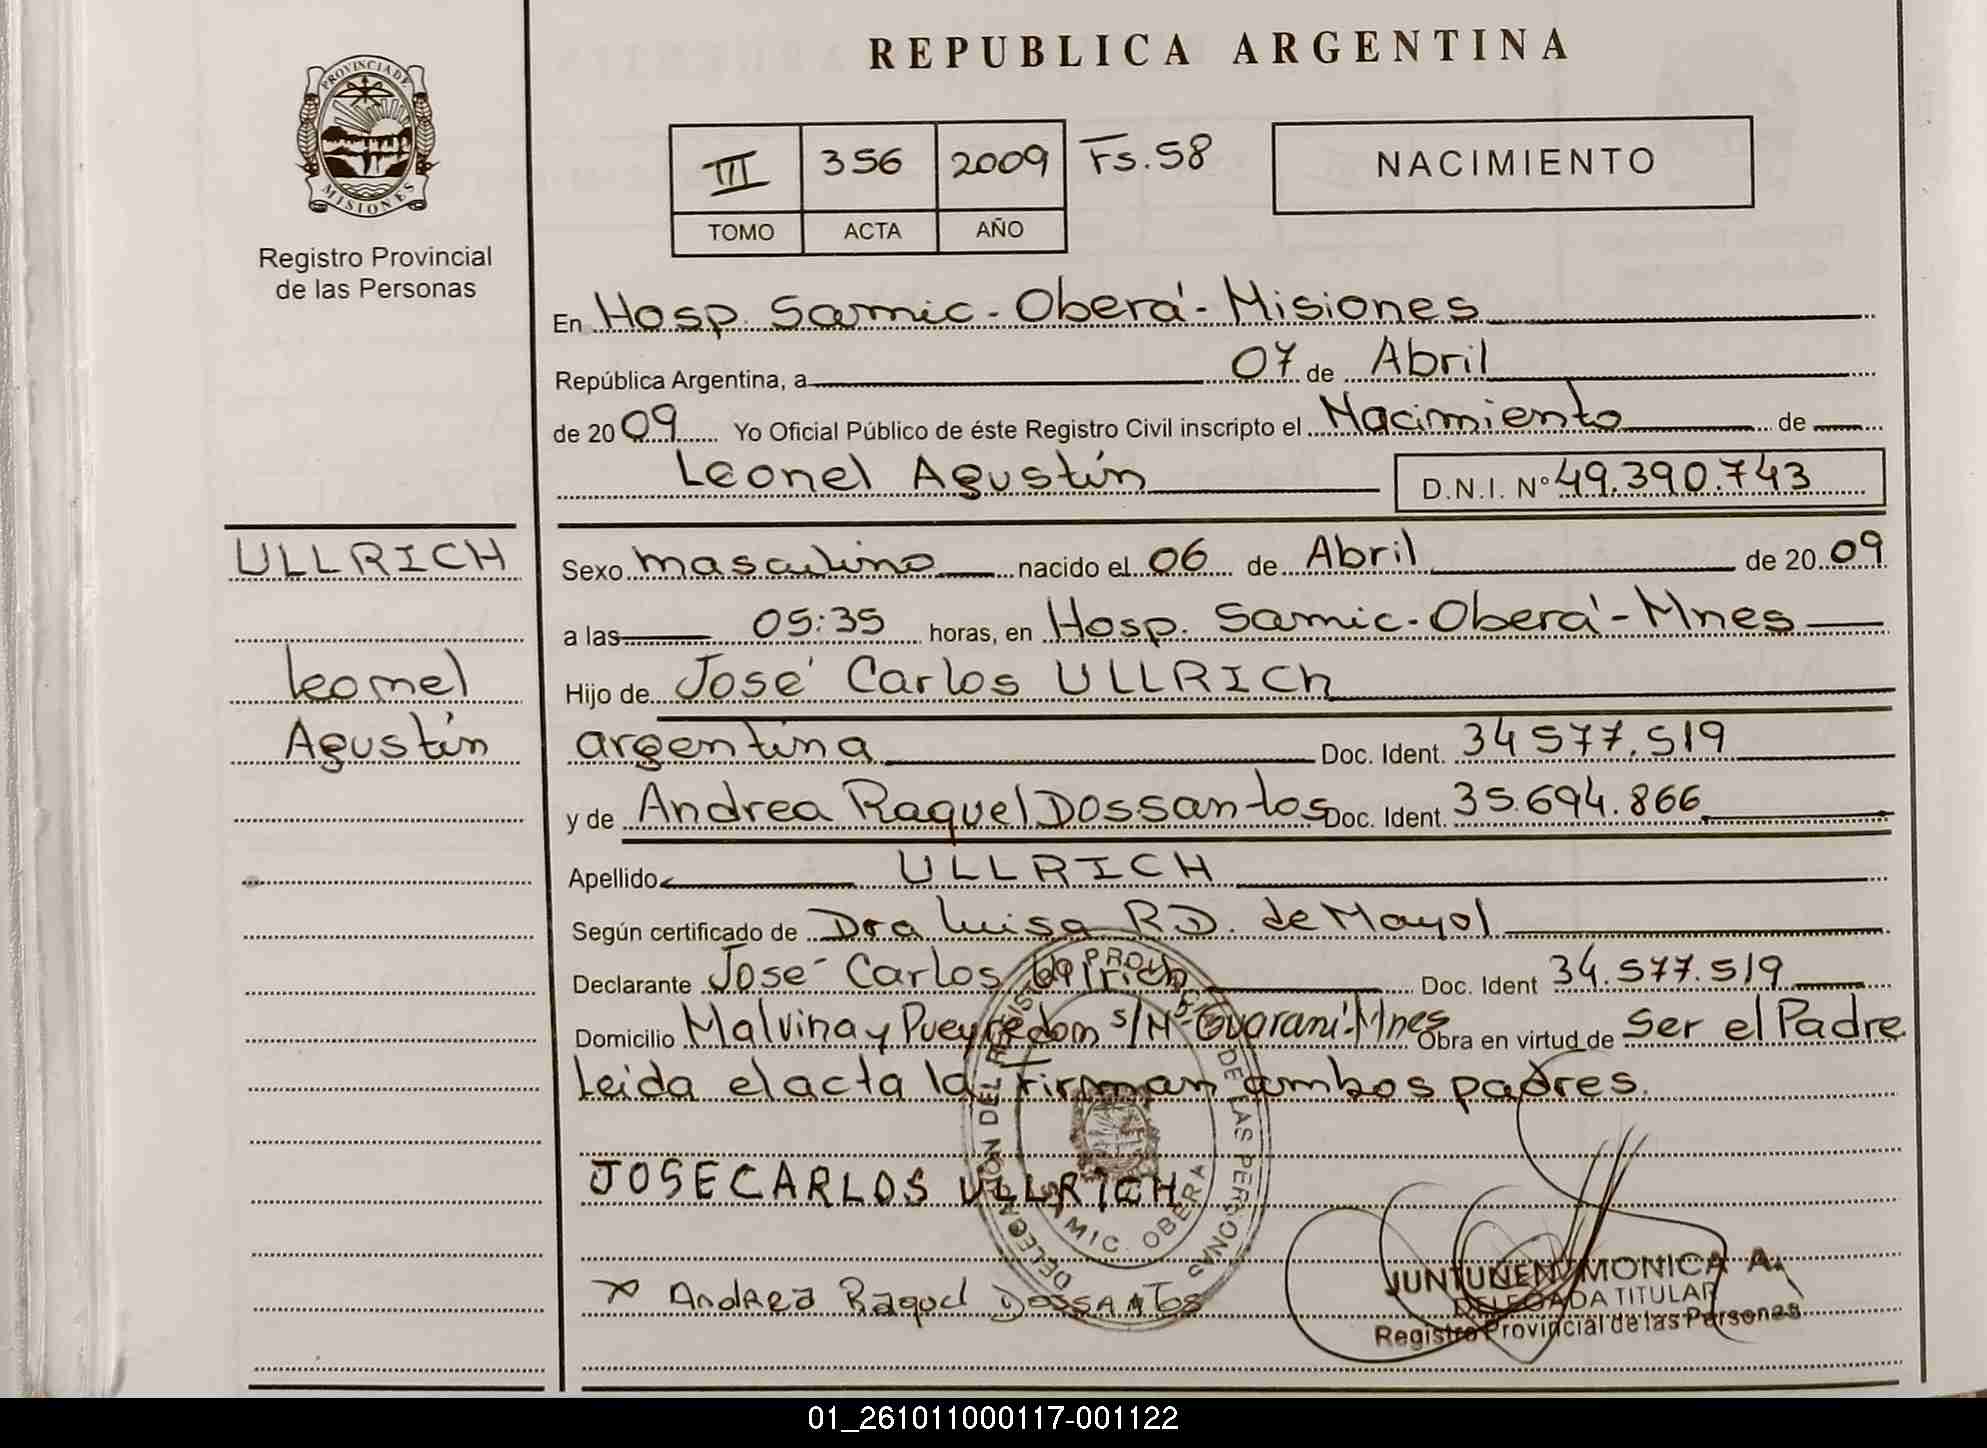 REPUBLICA ARGENTINA
PROVINCIA DE MISIONES
Registro Provincial
de las Personas
III 356 2009 Fs. 58
TOMO ACTA AÑO
NACIMIENTO
En Hosp. Samic - Oberá - Misiones
República Argentina, a 07 de Abril
de 2009 Yo Oficial Público de éste Registro Civil inscripto el Nacimiento de
Leonel Agustín D.N.I. Nº 49.390.743
ULLRICH
Leonel
Agustín
Sexo masculino nacido el 06 de Abril de 2009
a las 05:35 horas, en Hosp. Samic - Oberá - Mnes
Hijo de José Carlos ULLRICh
argentina Doc. Ident. 34577.519
y de Andrea Raquel Dossantos Doc. Ident. 35.694.866
Apellido ULLRICH
Según certificado de Dra Luisa R.D. de Mayol
Declarante José Carlos Ullrich Doc. Ident 34.577.519
Domicilio Malvina y Pueyredon s/Nº Guaraní - Mnes Obra en virtud de Ser el Padre
Leida el acta la Firman ambos padres.
JOSE CARLOS ULLRICH
x Andrea Raquel Dossantos
DELEGACION DEL REGISTRO PROVINCIAL DE LAS PERSONAS
SAMIC. OBERA
JUNTUNEN MONICA A.
DELEGADA TITULAR
Registro Provincial de las Personas
01_261011000117-001122